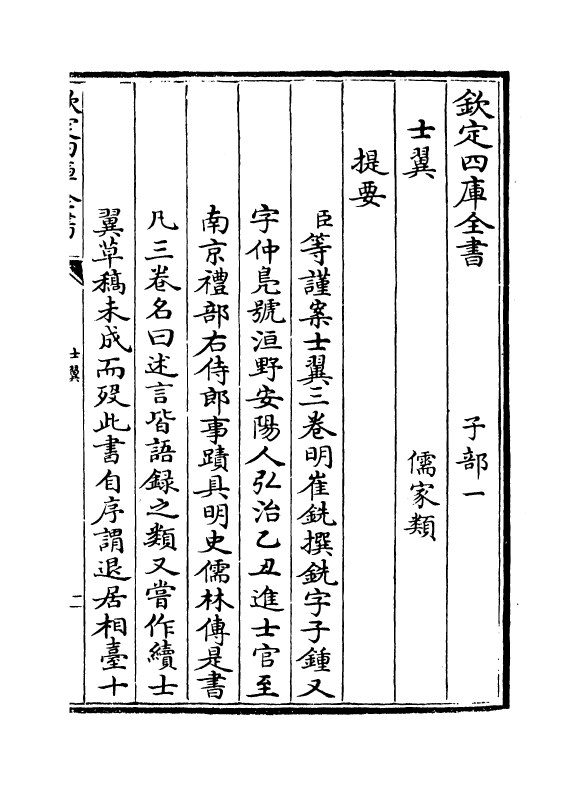 欽定四庫全書　子部一
士翼　儒家類
提要
臣等謹案士翼三卷明崔銑撰銑字子鍾又
字仲鳬號洹野安陽人弘治乙丑進士官至
南京禮部右侍郎事蹟具明史儒林傳是書
凡三卷名曰述言皆語録之類又嘗作續士
翼草稿未成而殁此書自序謂退居相臺十
欽定四庫全書　士翼　二